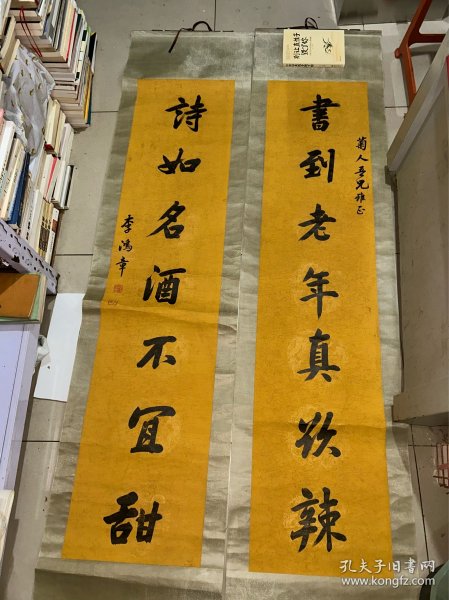 菊人吾兄雅正
書到老年真欲辣
詩如名酒不宜甜
李鴻章
孔夫子旧书网
www.kongfz.com